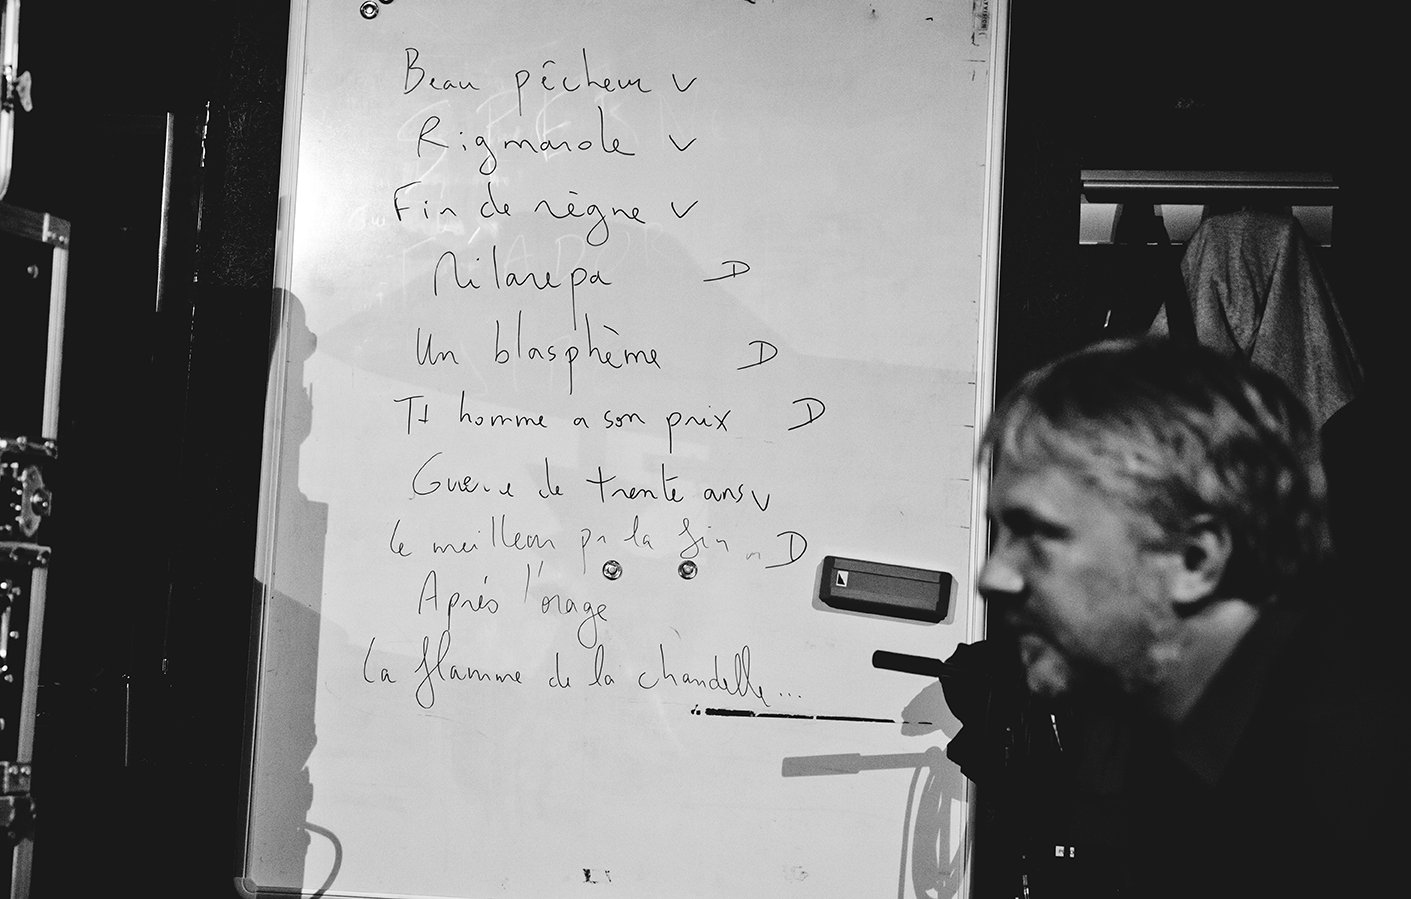 Beau pêcheur V
Rigmarole V
Fin de règne V
Milarepa D
Un blasphème D
Tt homme a son prix D
Guerre de trente ans V
Le meilleur pr la fin D
Après l'orage
La flamme de la chandelle...